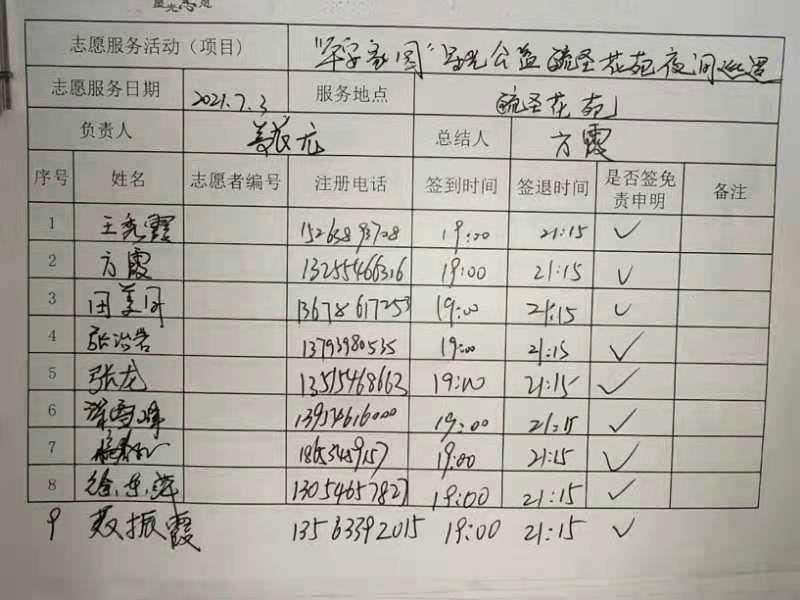 星光志愿
志愿服务活动（项目） 公益 花苑夜间巡逻
志愿服务日期 2021.7.3 服务地点 花苑
负责人 总结人 方霞
序号 姓名 志愿者编号 注册电话 签到时间 签退时间 是否签免责申明 备注
1 王秀霞 19:00 21:15 ✓
2 方霞 13255466316 19:00 21:15 ✓
3 田美 13678617253 19:00 21:15 ✓
4 张 13793980535 19:00 21:15 ✓
5 张龙 13515468663 19:00 21:15 ✓
6 13954616000 19:00 21:15 ✓
7 19:00 21:15 ✓
8 徐东萍 13054657827 19:00 21:15 ✓
9 聂振霞 13563392015 19:00 21:15 ✓